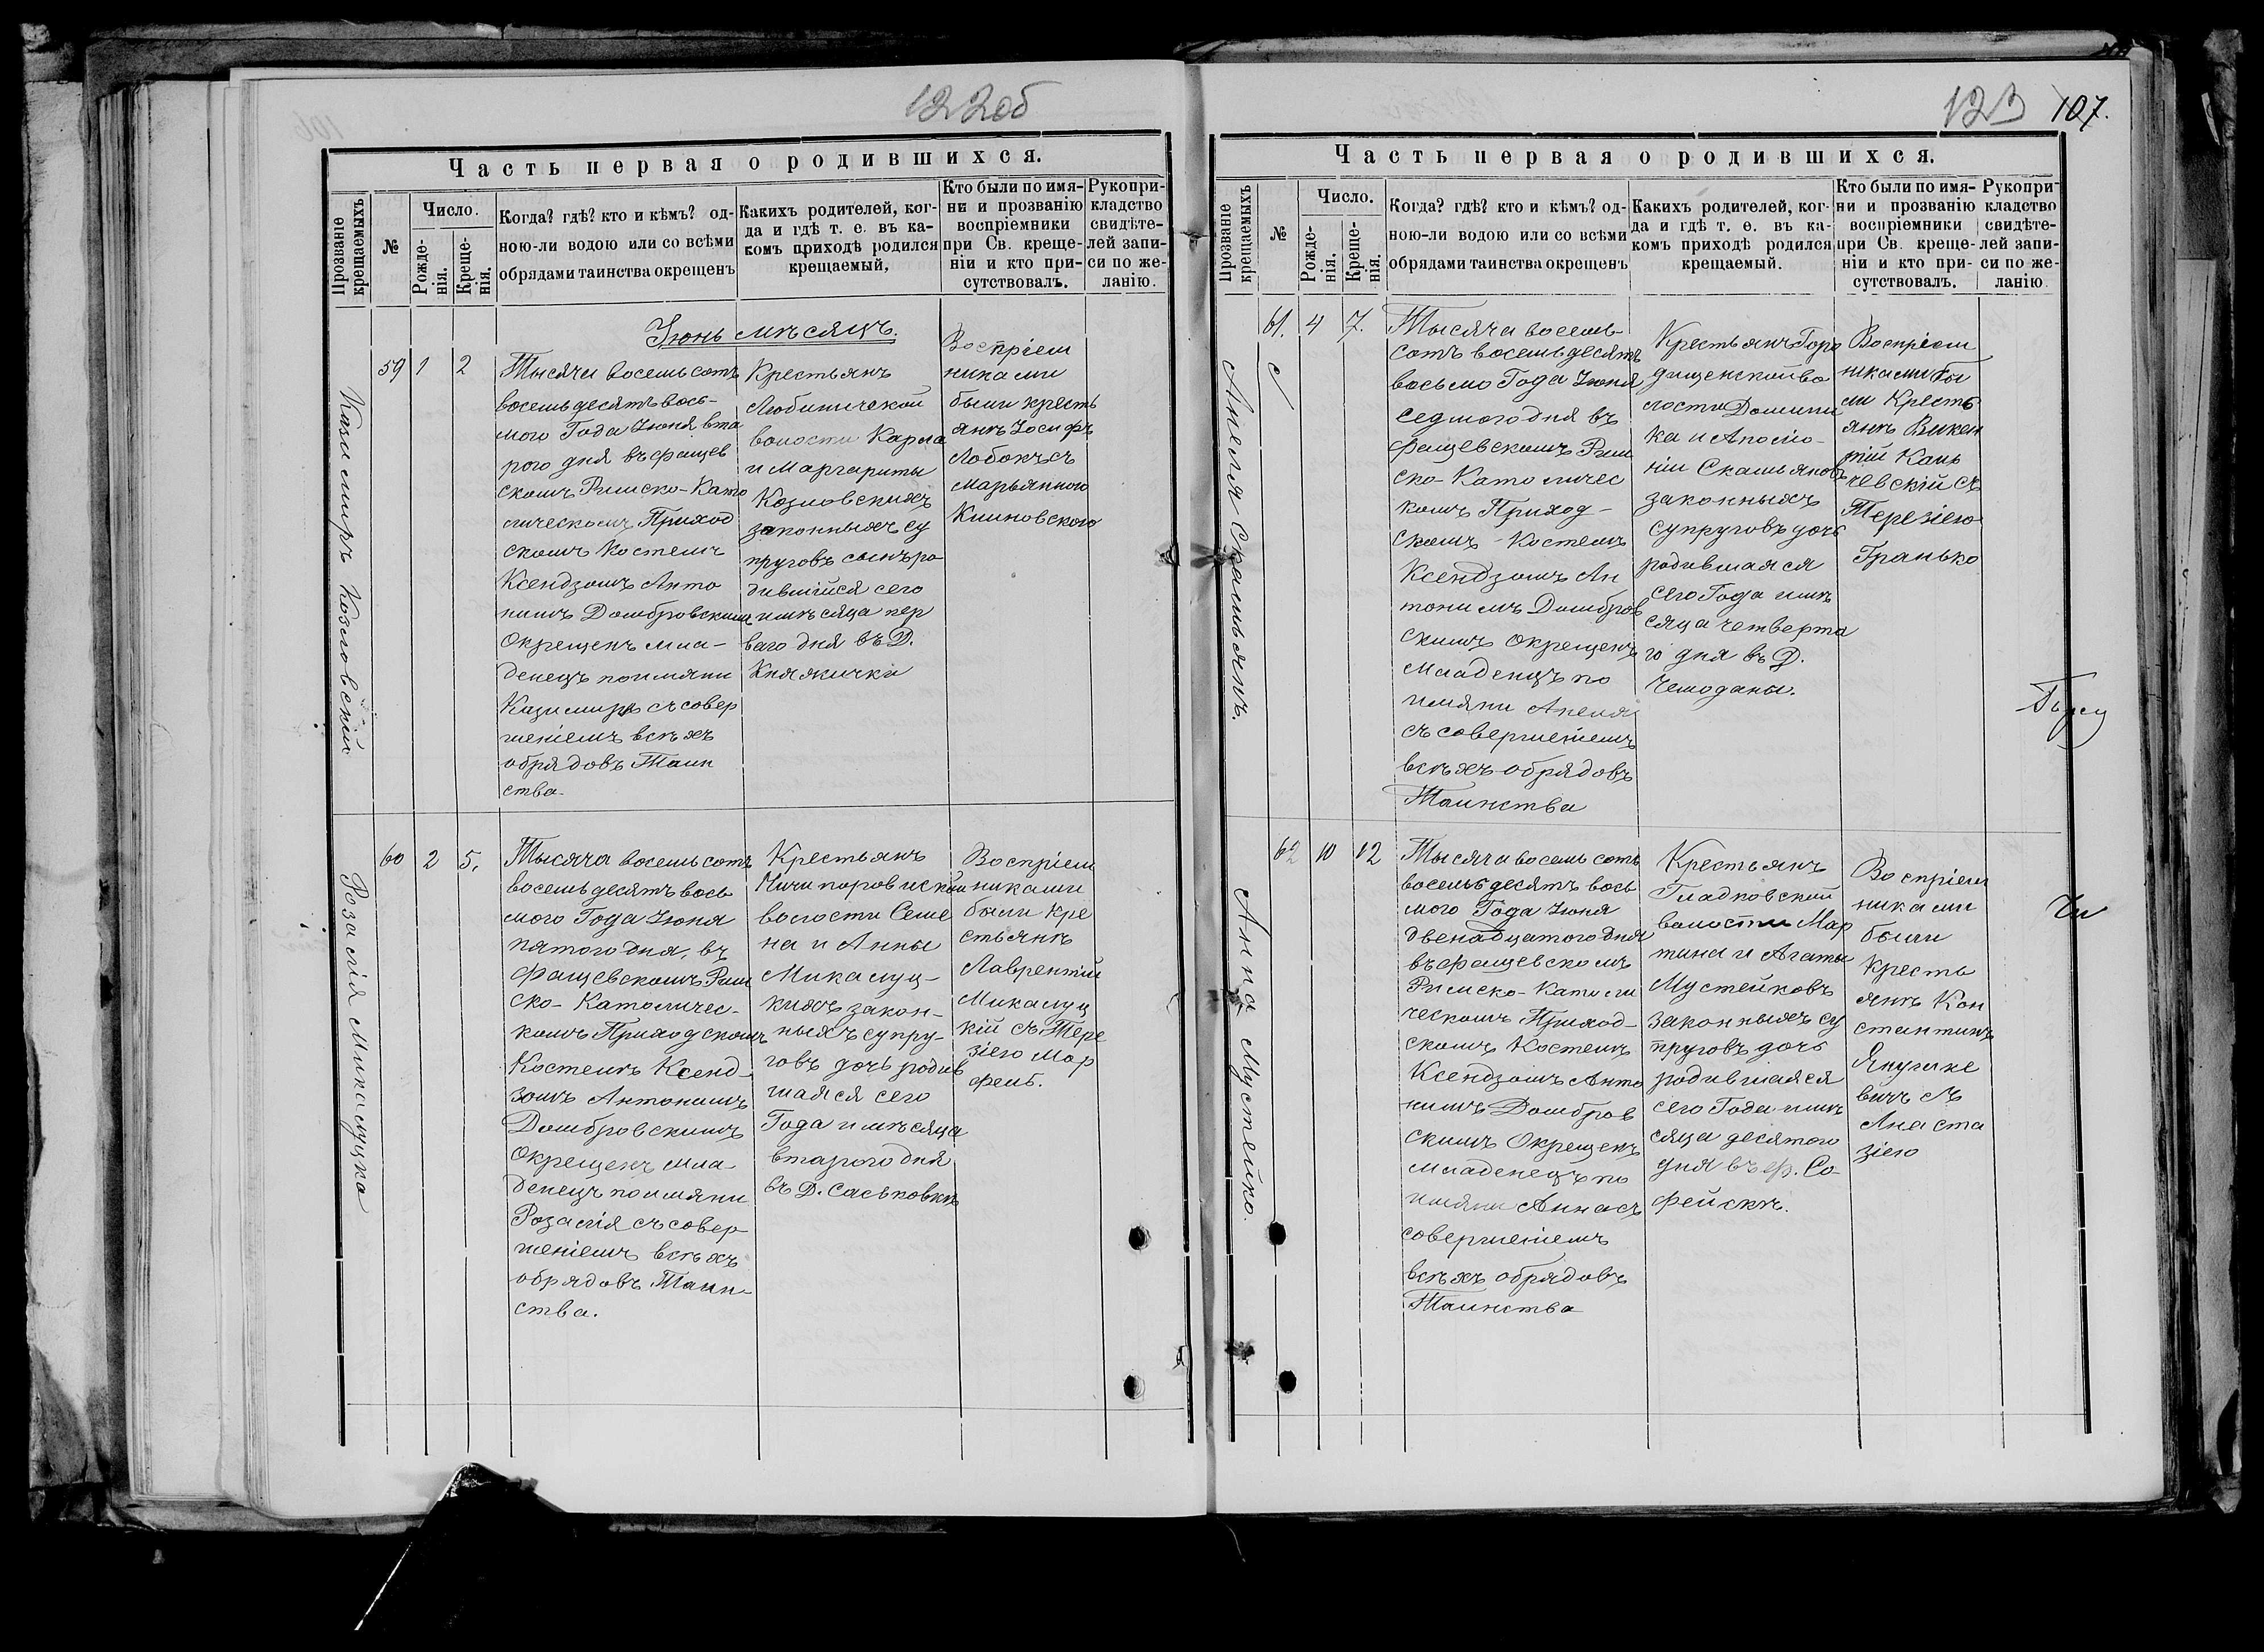 122об
Часть первая о родившихся.
Прозваніе крещаемыхъ
№
Число.
Рожде-
нія.
Креще-
нія.
Когда? гдѣ? кто и кѣмъ? од-
ною-ли водою или со всѣми
обрядами таинства окрещенъ
Какихъ родителей, ког-
да и гдѣ т. е. въ ка-
комъ приходѣ родился
крещаемый,
Кто были по имя-
ни и прозванію
воспріемники
при Св. креще-
ніи и кто при-
сутствовалъ.
Рукопри-
кладство
свидѣте-
лей запи-
си по же-
ланію.
Іюнь мѣсяцъ.
Казимиръ Козловскій
59 1 2
Тысяча восемьсотъ
восемьдесятъ вось-
мого Года Іюня вта
рого дня въ Фащев
скомъ Римско-Като
лическомъ Приход
скомъ Костелѣ
Ксендзомъ Анто
нимъ Домбровскимъ
Окрещенъ мла-
денецъ по имяни
Казимиръ съ совер
шеніемъ всѣхъ
обрядовъ Таин
ства.
Крестьянъ
Любиничской
волости Карла
и Маргариты
Козловскихъ
законныхъ су
пруговъ сынъ ро
дившійся сего
имѣсяца пер
ваго дня въ Д.
Княжички
Воспріем
никами
были кресть
янъ Іосифъ
Лобокъ съ
Марьянною
Климовскою
Розалія Микалуцка
60 2 5.
Тысяча восемьсотъ
восемьдесятъ вось
мого Года Іюня
пятого дня, въ
Фащевскомъ Рим
ско-Католичес-
комъ Приходскомъ
Костелѣ Ксенд-
зомъ Антонимъ
Домбровскимъ
Окрещенъ мла-
денецъ по имяни
Розалія съ совер
шеніемъ всѣхъ
обрядовъ Таин-
ства.
Крестьянъ
Чичиповичской
волости Семе
на и Анны
Микалуц-
кихъ закон-
ныхъ супру-
говъ дочь родив
шаяся сего
Года и мѣсяца
второго дня
въ Д. Саськовкѣ
Воспріем
никами
были Кре
стьянъ
Лаврентій
Микалуц
кій съ Тере
зіею Мар
фель.
123 107.
Часть первая о родившихся.
Прозваніе крещаемыхъ
№
Число.
Рожде-
нія.
Креще-
нія.
Когда? гдѣ? кто и кѣмъ? од-
ною-ли водою или со всѣми
обрядами таинства окрещенъ
Какихъ родителей, ког-
да и гдѣ т. е. въ ка-
комъ приходѣ родился
крещаемый.
Кто были по имя-
ни и прозванію
воспріемники
при Св. креще-
ніи и кто при-
сутствовалъ.
Рукопри-
кладство
свидѣте-
лей запи-
си по же-
ланію.
Анеля Скамьянъ.
61. 4 7.
Тысяча восемь
сотъ восемьдесятъ
восьмо Года Іюня
седмого дня въ
Фащевскомъ Рим
ско-Католичес
комъ Приход-
скомъ Костелѣ
Ксендзомъ Ан
тонимъ Домбров
скимъ Окрещенъ
Младенецъ по
имяни Анеля
съ совершеніемъ
всѣхъ обрядовъ
Таинства
Крестьянъ Горо
дищенской во
лости Домини
ка и Аполло-
ніи Скамьяновъ
законныхъ
супруговъ дочь
родившаяся
сего Года и мѣ
сяца четверта
го дня въ Д.
Чемоданы.
Воспріем
никами бы
ли Кресть
янъ Викен
тій Кань
чевскій съ
Терезіею
Гранько
Анна Мустейко.
62 10 12
Тысяча восемьсотъ
восемьдесятъ вось
мого Года Іюня
двенадцатого дня
въ Фащевскомъ
Римско-Католи
ческомъ Приход-
скомъ Костелѣ
Ксендзомъ Анто
нимъ Домбров
скимъ Окрещенъ
младенецъ по
имяни Анна съ
совершеніемъ
всѣхъ обрядовъ
Таинства
Крестьянъ
Гладковской
волости Мар
тина и Агаты
Мустейковъ
законныхъ су
пруговъ дочь
родившаяся
сего Года и мѣ
сяца десятого
дня въ ф. Со-
фейскѣ.
Воспріем
никами
были
Кресть
янъ Кон
стантинъ
Янушке
вичъ съ
Анаста
зіею